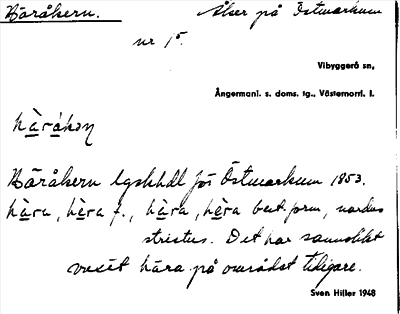 Häråkern. Åker på Östmarkum
nr 1⁵.
Vibyggerå sn,
Ångermanl. s. doms. tg., Västernorrl. l.
Häråkern lgskhdl för Östmarkum 1853.
hära, f., hära, best. form, nardus
strictus. Det har sannolikt
växt hära på området tidigare.
Sven Hiller 1948